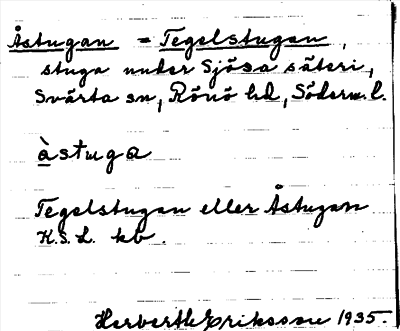 Åstugan = Tegelstugan,
stuga under Sjösa säteri,
Svärta sn, Rönö hd, Söderm. l.
àstuga
Tegelstugan eller Åstugan
K.S.L. kb.
Herberth Eriksson 1935.